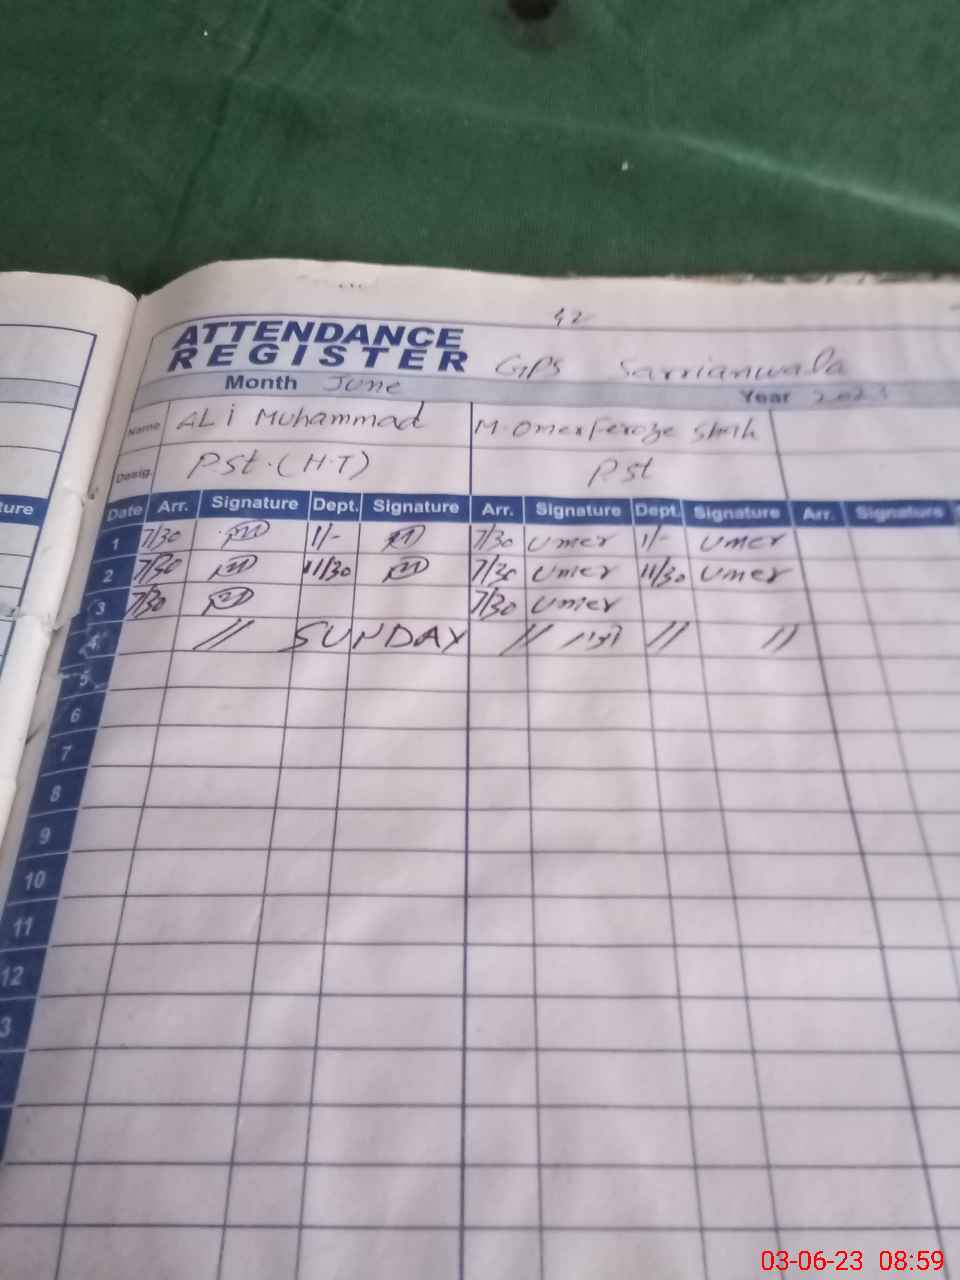 42
ATTENDANCE
REGISTER GPS Sarrianwala
Month June Year 2023
Name ALi Muhammad M.Omer Feroze Shah
Desig. P.St.(H.T) P.St
ture Date Arr. Signature Dept. Signature Arr. Signature Dept. Signature Arr. Signature
1 7/30 1/- 7/30 Umer 1/- Umer
2 7/30 11/30 7/30 Umer 11/30 Umer
3 7/30 7/30 Umer
4 // SUNDAY // اتوار // //
5
6
7
8
9
10
11
12
3
03-06-23 08:59